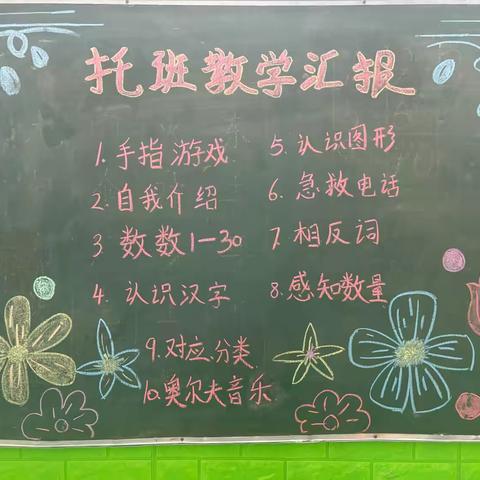 托班教学汇报
1. 手指游戏
2. 自我介绍
3 数数1—30
4. 认识汉字
5. 认识图形
6. 急救电话
7. 相反词
8. 感知数量
9. 对应、分类
10. 奥尔夫音乐